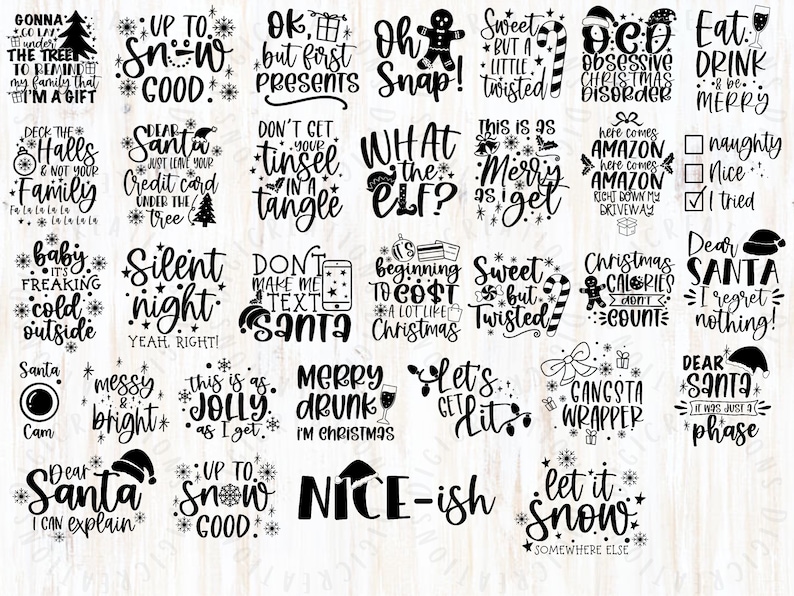 GONNA
GO LAY
under
THE TREE
TO REMIND
my family that
I'M A GIFT
UP TO
Snow
GOOD
OK,
but first
PRESENTS
Oh
Snap!
Sweet
BUT A
LITTLE
twisted
OCD
OBSESSIVE
CHRISTMAS
DISORDER
Eat,
DRINK
& be
MERRY
DECK THE
Halls
& NOT YOUR
Family
Fa La La La La
La La La La
DEAR
Santa
JUST LEAVE YOUR
Credit card
UNDER THE
tree
DON'T GET
your
tinsel
IN A
tangle
WHAT
the
ELF?
This is as
Merry
as I get
here comes
AMAZON
here comes
AMAZON
RIGHT DOWN MY
DRIVEWAY
naughty
Nice
I tried
baby
IT'S
FREAKING
cold
outside
Silent
night
YEAH, RIGHT!
DON'T
MAKE ME
TEXT
Santa
it's
beginning
TO CO$T
A LOT LIKE
Christmas
Sweet
but
Twisted
Christmas
CALORIES
DON'T
COUNT
Dear
SANTA
I regret
nothing!
Santa
Cam
messy
&
bright
this is as
JOLLY
as I get
MERRY
DRUNK
I'M CHRISTMAS
Let's
GET
Lit
GANGSTA
WRAPPER
DEAR
Santa
IT WAS JUST A
phase
Dear
Santa
I CAN explain
UP TO
SNOW
GOOD
NICE-ish
let it
snow
SOMEWHERE ELSE
DIGICREATIONS